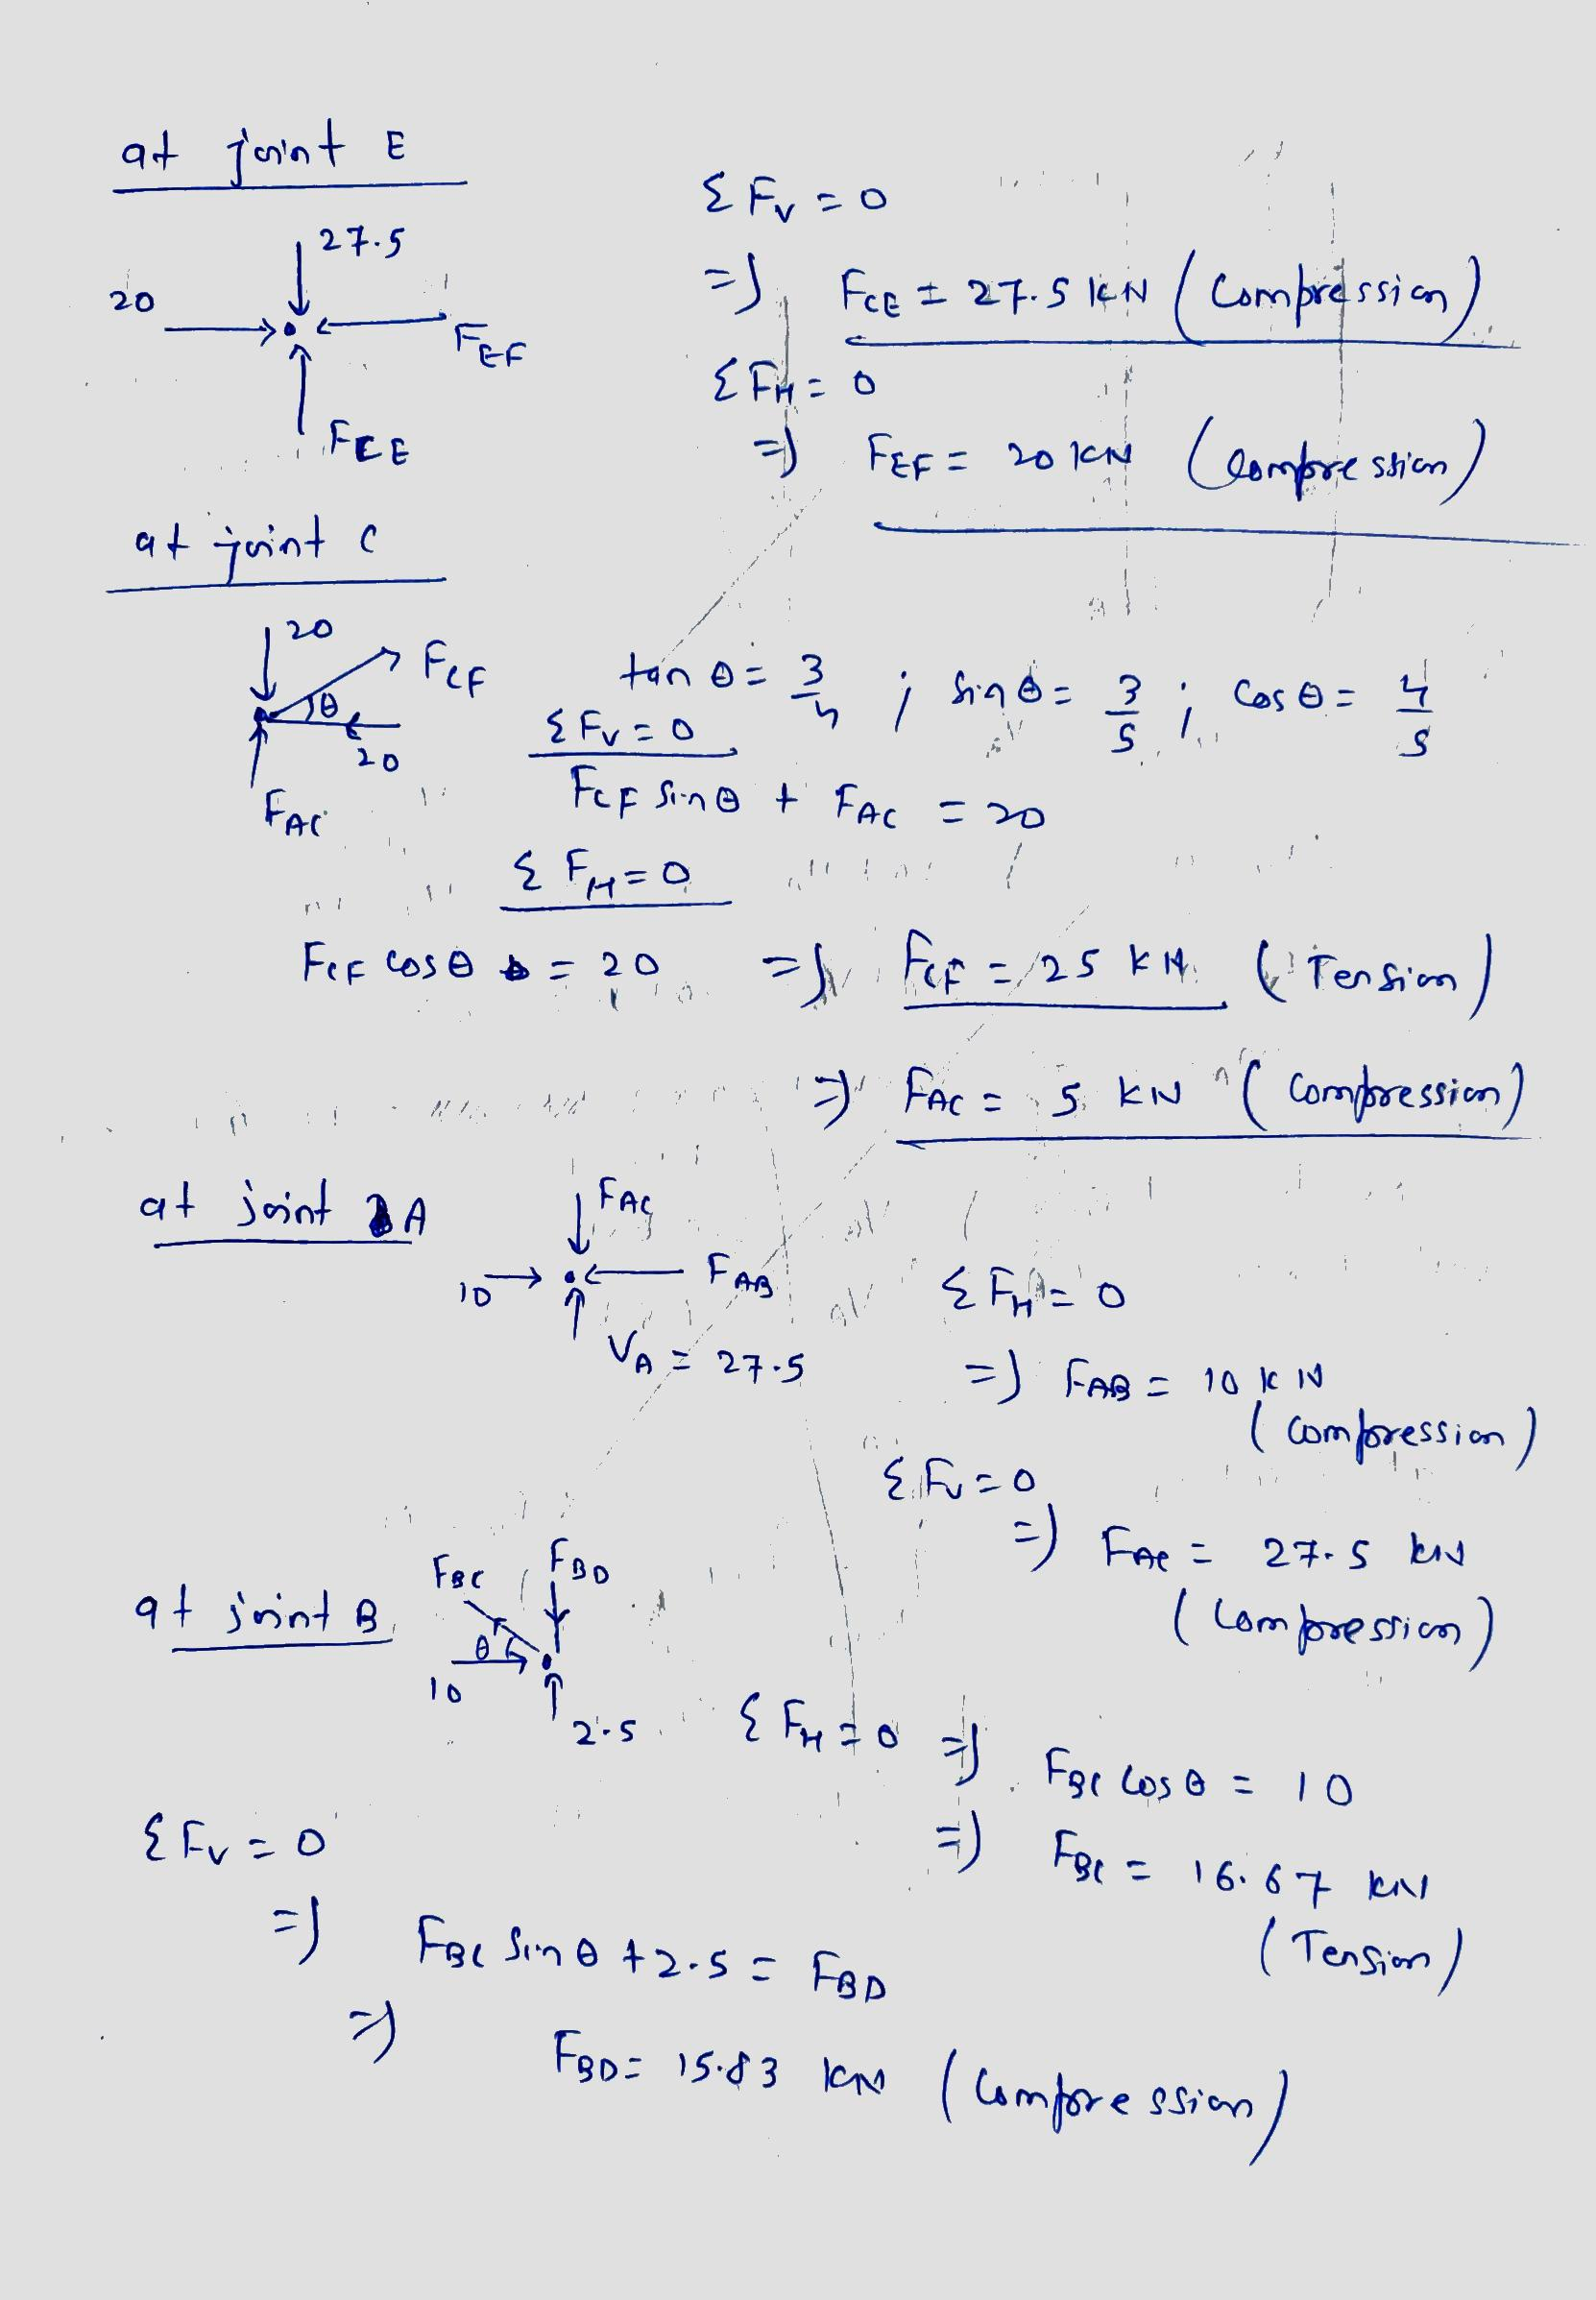 at joint E
27.5
20
F_EF
F_CE
Σ F_V = 0
=) F_CE = 27.5 kN (Compression)
Σ F_H = 0
=) F_EF = 20 kN (Compression)
at joint C
20
F_CF
θ
20
F_AC
tan θ = 3/4 ; sin θ = 3/5 ; cos θ = 4/5
Σ F_V = 0
F_CF sin θ + F_AC = 20
Σ F_H = 0
F_CF cos θ = 20 =) F_CF = 25 kN (Tension)
=) F_AC = 5 kN (Compression)
at joint A
F_AC
10
F_AB
V_A = 27.5
Σ F_H = 0
=) F_AB = 10 kN
(Compression)
Σ F_V = 0
=) F_AC = 27.5 kN
(Compression)
at joint B
F_BC
F_BD
θ
10
2.5
Σ F_H = 0 =) F_BC cos θ = 10
=) F_BC = 16.67 kN
(Tension)
Σ F_V = 0
=) F_BC sin θ + 2.5 = F_BD
=) F_BD = 15.83 kN (Compression)